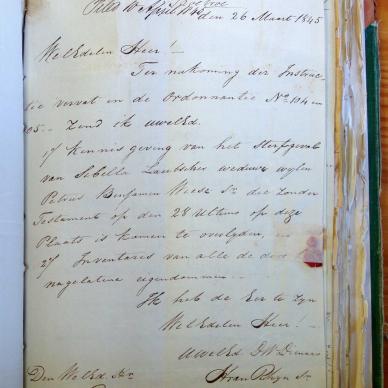 den 26 Maart 1845
WelEdelen Heer!
Ter nakoming der Instruc-
tie vervat in de Ordonnantie No. 104 en
105 Zend ik uwelEd.
1/ Kennisgeving van het Sterfgeval
van Sibella Laubscher weduwe wylen
Petrus Benjamin Wiese Sr die zonder
Testament op den 28 Ultimo op deze
Plaats is komen te overlyden, en
2/ Inventaris van alle de door
nagelatene eigendommen
Ik heb de Eer te Zyn
WelEdelen Heer!
uwelEd
Den WelEd